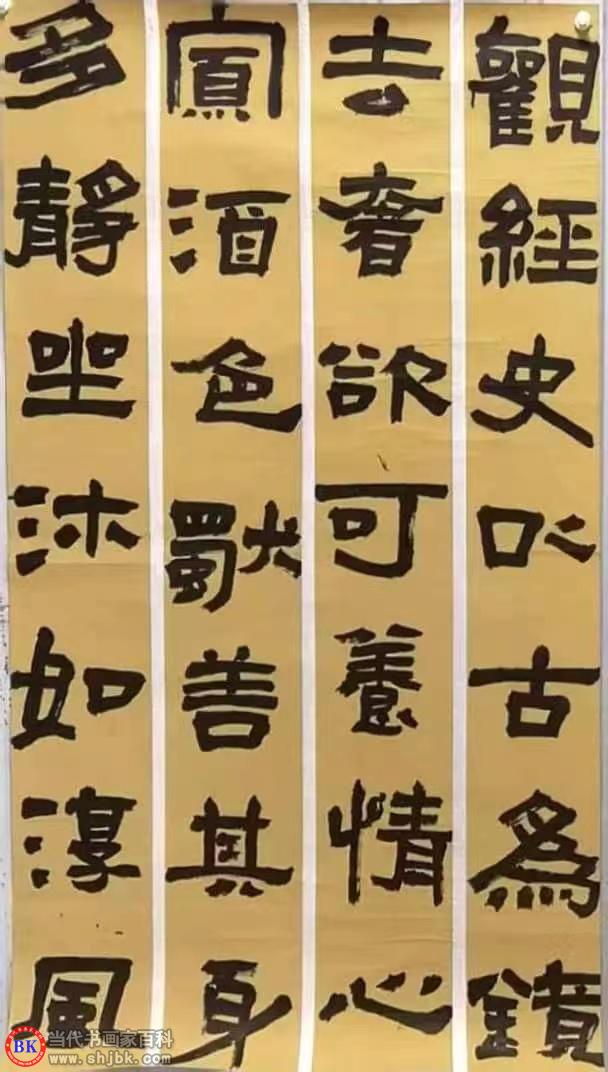 觀經史以古爲鏡
去奢欲可養情心
寡酒色獨善其身
多靜坐沐如淳風
BK
当代书画家百科
www.shjbk.com